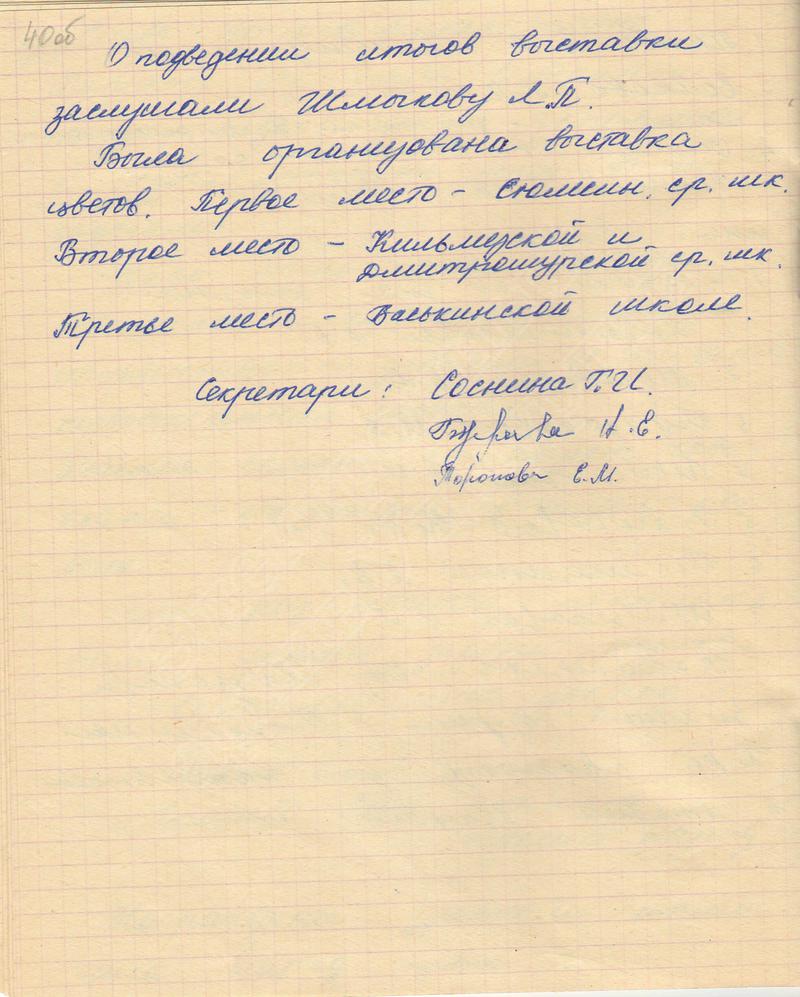 40об
О подведении итогов выставки
заслушали Шмыкову Л.П.
Была организована выставка
цветов. Первое место - Сюмсин. ср. шк.
Второе место - Кильмезской и
Дмитрошурской ср. шк.
Третье место - Васькинской школе.
Секретари: Соснина Г.И.
Н.Е.
Е.М.